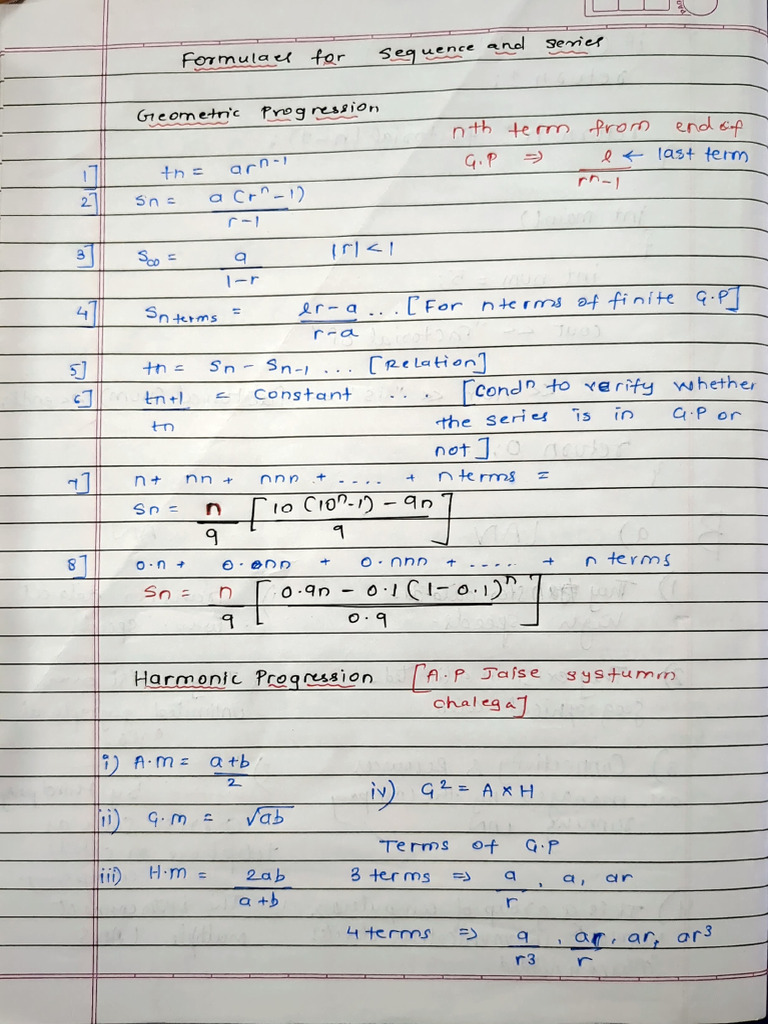 Formulaes for sequence and series
Geometric Progression
nth term from end of
G.P ⇒ l/r^n-1 ← last term
1] tn = ar^n-1
2] Sn = a(r^n-1)/r-1
3] S∞ = a/1-r |r|<1
4] Sn terms = lr-a/r-a ... [For n terms of finite G.P]
5] tn = Sn - Sn-1 ... [Relation]
6] tn+1/tn = constant ... [condn to verify whether
the series is in G.P or
not]
7] n + nn + nnn + .... + n terms =
Sn = n/9 [10(10^n-1) - 9n/9]
8] 0.n + 0.nn + 0.nnn + ..... + n terms
Sn = n/9 [0.9n - 0.1(1-0.1)^n/0.9]
Harmonic Progression [A.P Jaise systumm
chalega]
i) A.m = a+b/2
iv) G² = A × H
ii) G.m = √ab
Terms of G.P
iii) H.m = 2ab/a+b
3 terms ⇒ a/r, a, ar
4 terms ⇒ a/r3, a/r, ar, ar³